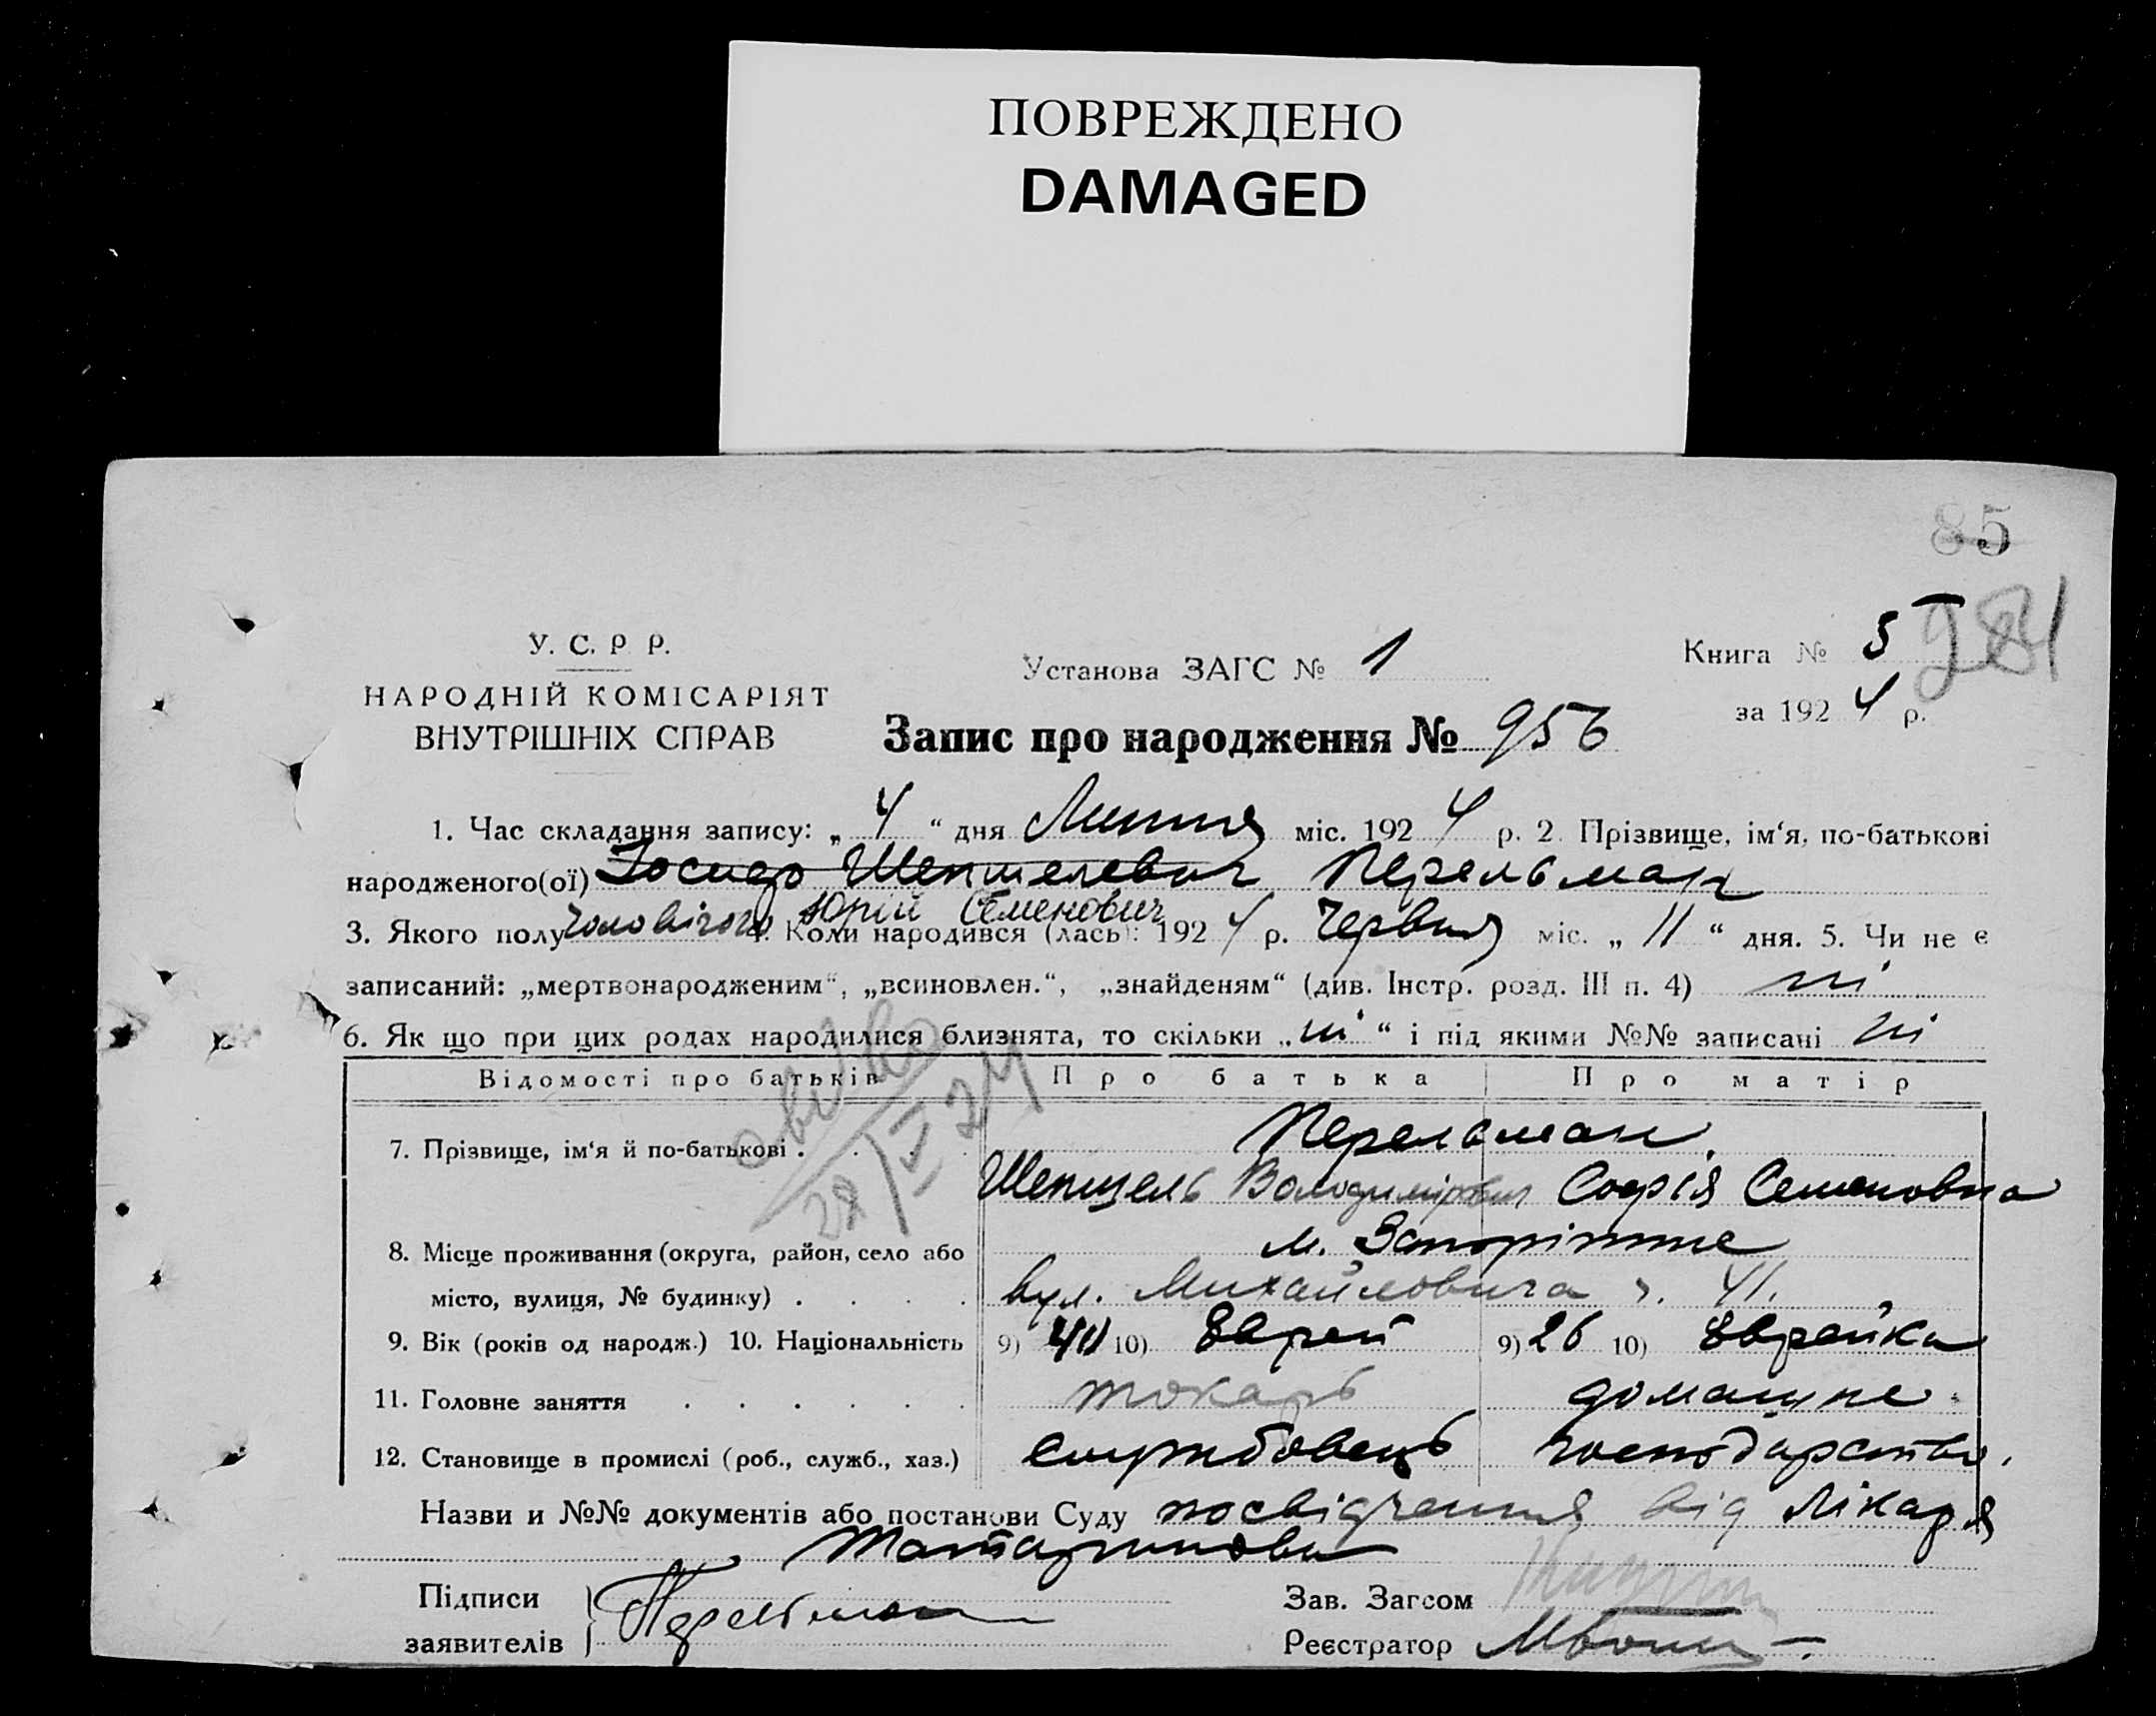 ПОВРЕЖДЕНО
DAMAGED
85
981
У. С. Р. Р.
НАРОДНІЙ КОМІСАРІЯТ
ВНУТРІШНІХ СПРАВ
Установа ЗАГС № 1
Книга № 5
за 1924 р.
Запис про народження № 956
1. Час складання запису: „4“ дня Липня міс. 1924 р. 2. Прізвище, ім‘я, по-батькові
народженого(ої) Иосиф Шепшелевич Перельман
Юрій Семенович
3. Якого полу чоловічого 4. Коли народився (лась): 1924 р. Червня міс. „11“ дня. 5. Чи не є
записаний: „мертвонародженим“, „всиновлен.“, „знайденям“ (див. Інстр. розд. III п. 4) ні
6. Як що при цих родах народилися близнята, то скільки „ні“ і під якими №№ записані ні
Відомості про батьків Про батька Про матір
7. Прізвище, ім‘я й по-батькові . Перельман
Шепшель Володимірович Софія Семеновна
8. Місце проживання (округа, район, село або м. Запоріжже
місто, вулиця, № будинку) . . . . вул. Михайловича ч. 41.
9. Вік (років од народж.) 10. Національність 9) 40 10) Еврей 9) 26 10) Еврейка
11. Головне заняття . . . . . . токарь домашне
12. Становище в промислі (роб., служб., хаз.) службовець господарство.
Назви и №№ документів або постанови Суду посвідчення від лікаря
Підписи
заявителів Перельман
Зав. Загсом
Реєстратор